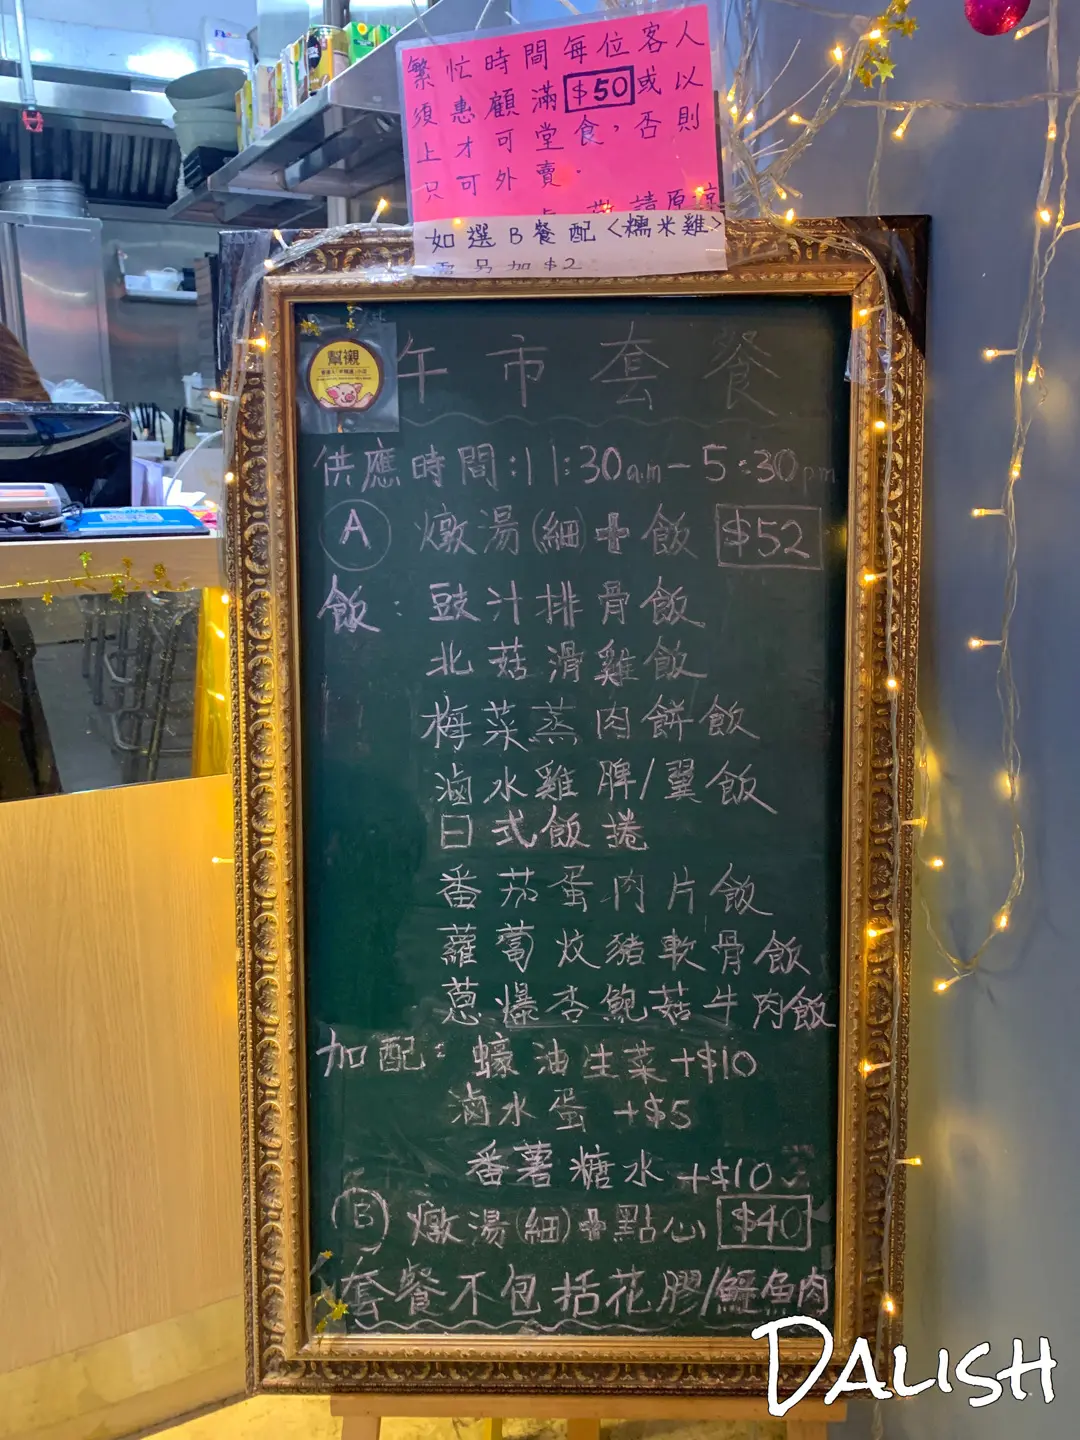 繁忙時間每位客人
須惠顧滿$50或以
上才可堂食，否則
只可外賣。
敬請原諒
如選B餐配<糯米雞>
需另加$2
幫襯
午市套餐
供應時間:11:30am-5:30pm
A 燉湯(細)+飯 $52
飯：豉汁排骨飯
北菇滑雞飯
梅菜蒸肉餅飯
滷水雞脾/翼飯
日式飯捲
番茄蛋肉片飯
蘿蔔炆豬軟骨飯
蔥爆杏鮑菇牛肉飯
加配：蠔油生菜+$10
滷水蛋+$5
番薯糖水+$10
B 燉湯(細)+點心 $40
套餐不包括花膠/鱷魚肉
DALISH